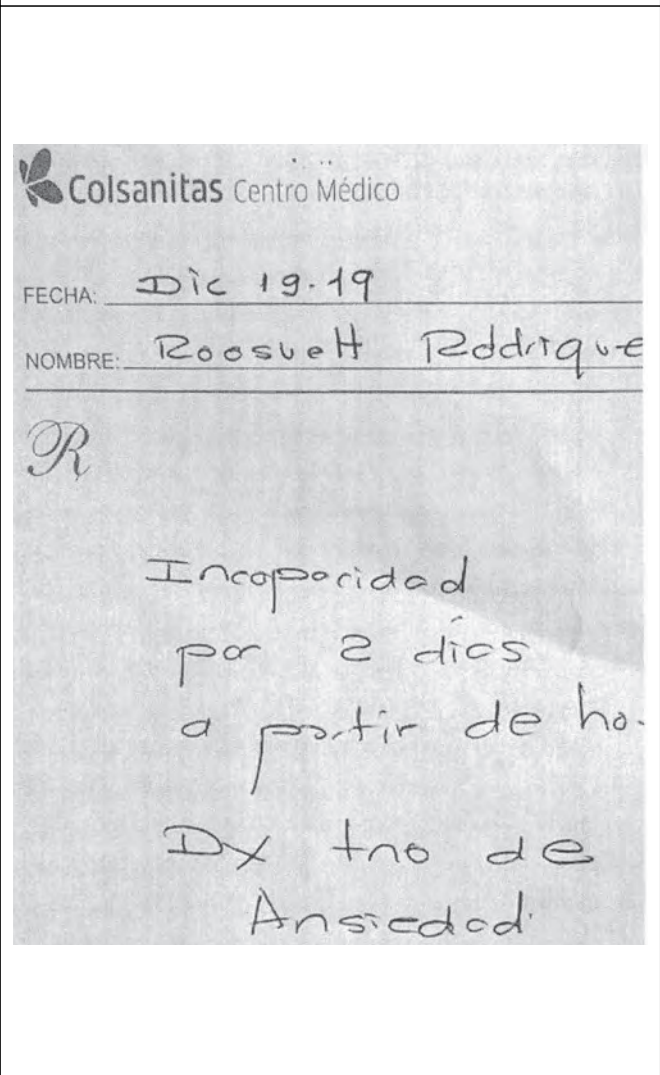 Colsanitas Centro Médico
FECHA: Dic 19-19
NOMBRE: Roosvelt Rodrigue
R
Incapacidad
por 2 días
a partir de ho
Dx tno de
Ansiedad